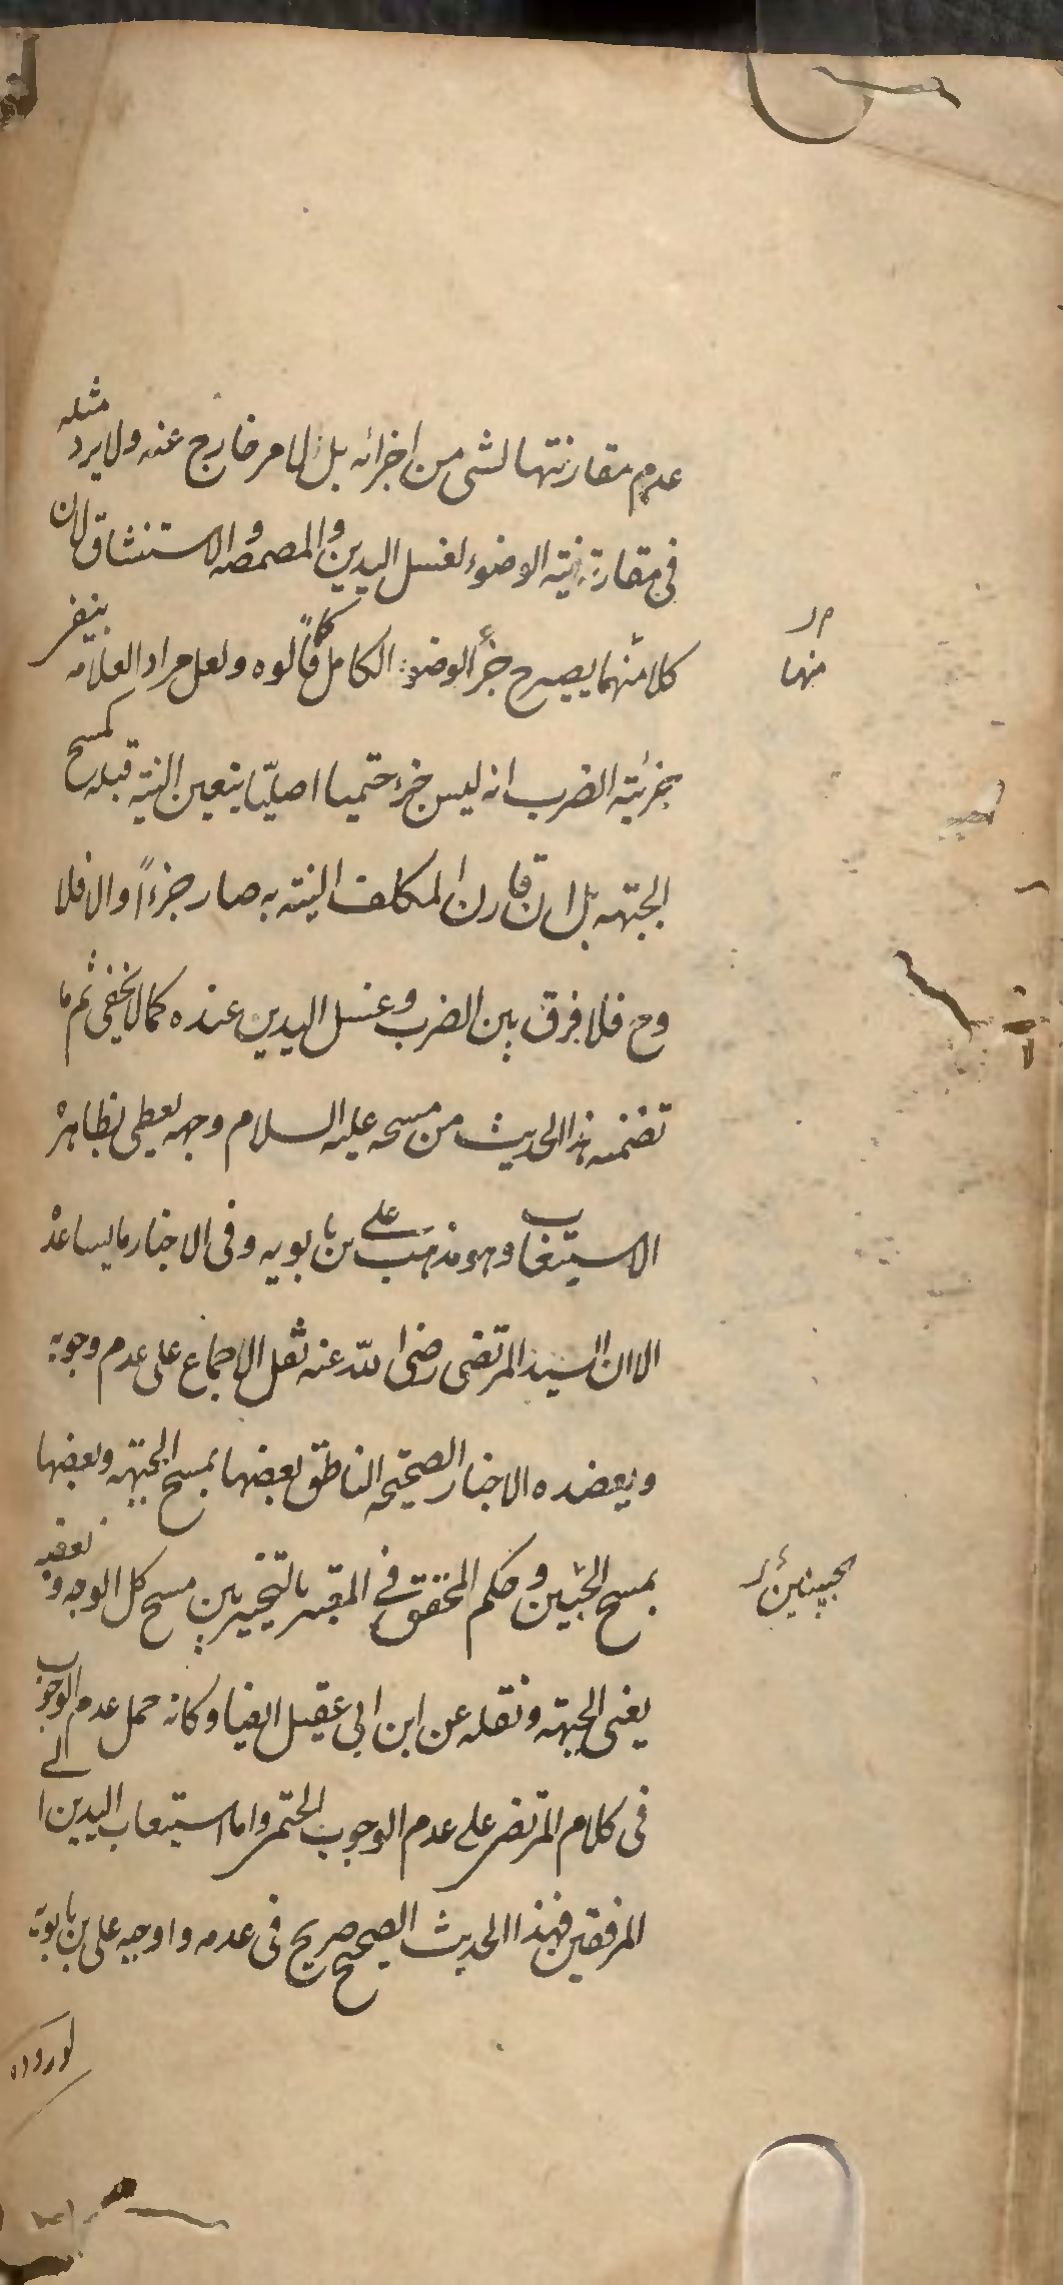 عدم مقارنتها لشی من اجزائه بل لامر خارج عنه ولا یرد مثله
فی مقارنة نیته الوضوء لغسل الیدین والمضمضه والاستنشاق لان
کلا منهما یصیر جزأ الوضوء الکامل کما قالوه ولعل مراد العلامه بنفی
منها
جزئیته الضرب انه لیس جزء حتمیا اصلیّا یتعین النیته قبله کمسح
الجبهه بل ان قارن المکلف النیته به صار جزءاً والا فلا
وح فلا فرق بین الضرب وغسل الیدین عنده کما لا یخفی ثم ما
تضمنه هذا الحدیث من مسحه علیه السلام وجهه یعطی بظاهره
الاستیعاب وهو مذهب علی بن بابویه وفی الاخبار ما یساعده
الا ان السید المرتضی رضی الله عنه نقل الاجماع علی عدم وجوبه
ویعضده الاخبار الصحیحه الناطق بعضها بمسح الجبهه وبعضها
بمسح الجبین وحکم المحقق فی المعتبر بالتخییر بین مسح کل الوجه وبعضه
لجبینین
یعنی الجبهة ونقله عن ابن ابی عقیل ایضا وکانه حمل عدم الوجوب
فی کلام المرتضی علی عدم الوجوب الحتمی واما استیعاب الیدین الی
المرفقین فهذا الحدیث الصحیح صریح فی عدمه واوجبه علی بن بابویه
لوروده